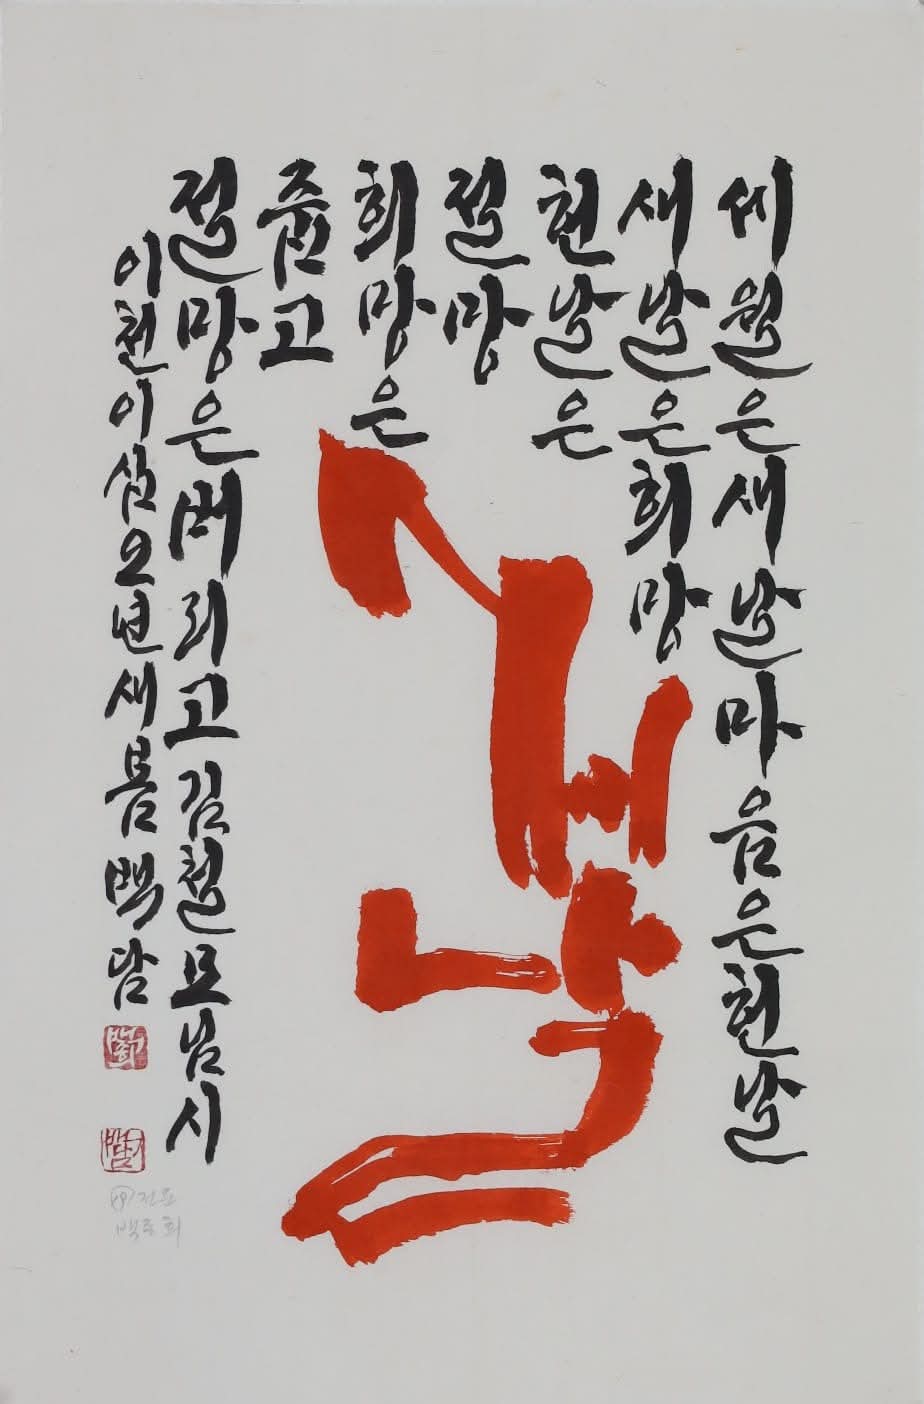 세월은새날마음은헌날
새날은희망
헌날은
절망
희망은
줍고
절망은버리고김철묘님시
이천이십오년새봄백담
새날